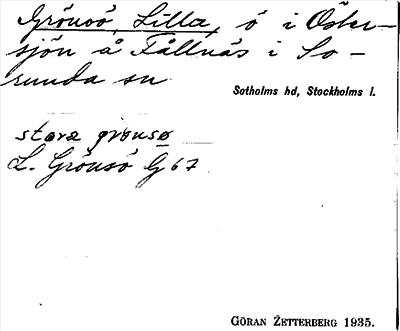 Grönsö, Lilla, ö i Öster-
sjön å Fållnäs i So-
runda sn
Sotholms hd, Stockholms l.
store grønsø
L. Grönsö G 67
GÖRAN ZETTERBERG 1935.